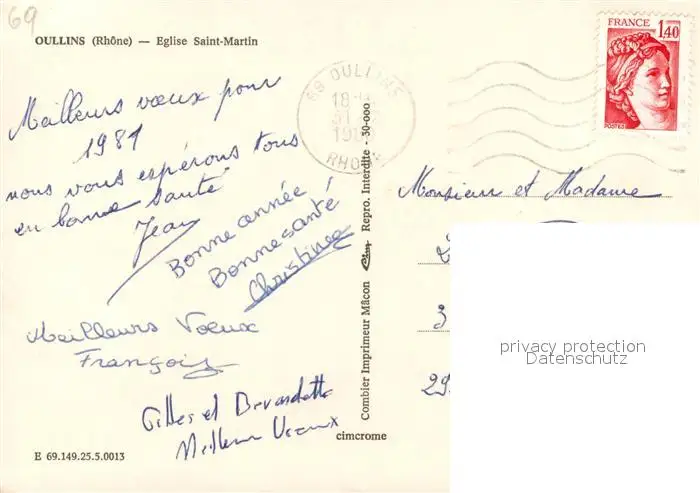 69
OULLINS (Rhône) — Eglise Saint-Martin
Meilleurs vœux pour
1981
nous vous espérons tous
en bonne santé
Jean
Bonne année !
Bonne santé !
Christine
Meilleurs Voeux
François
Gilles et Bernadette
Meilleurs Vœux
cimcrome
E 69.149.25.5.0013
Combier Imprimeur Mâcon Repro. Interdite - 30-000
69 OULLINS
18 H
31
RHONE
FRANCE
1,40
POSTES
Monsieur et Madame
3
29
privacy protection
Datenschutz